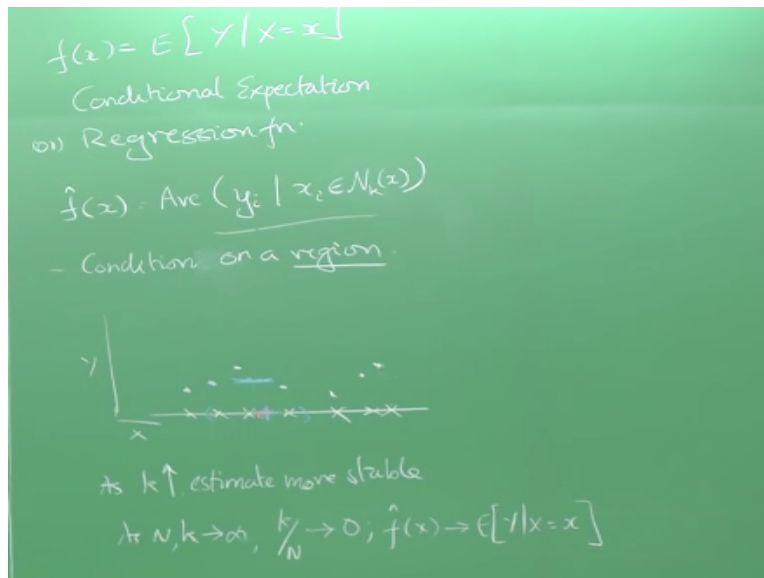 f(x) = E[Y|X=x]
Conditional Expectation
(or) Regression fn.
f̂(x) = Ave (y_i | x_i ∈ N_k(x))
- Condition on a region.
Y
X
As k↑ estimate more stable
As N, k→∞, k/N → 0; f̂(x) → E[Y|X=x]